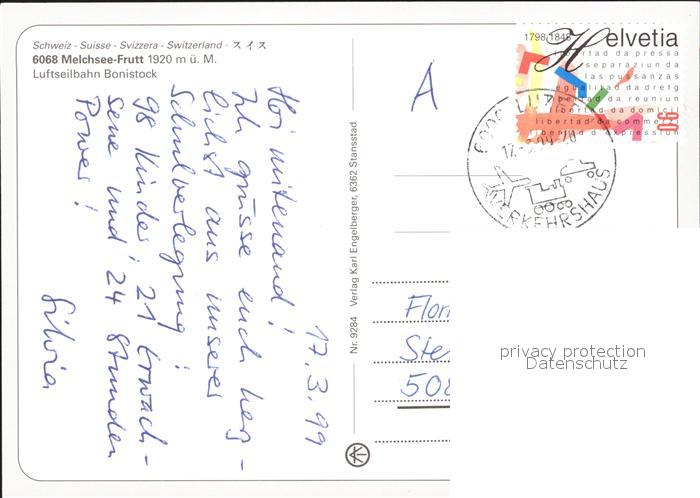 Schweiz - Suisse - Svizzera - Switzerland - スイス
6068 Melchsee-Frutt 1920 m ü. M.
Luftseilbahn Bonistock
17.3.99
Hoi mitenand!
Ich grüsse euch herz-
lichst aus unserer
Schulverlegung!
98 Kinder, 21 Erwach-
sene und 24 Stunden
Power!
Silvia
Nr. 9284 Verlag Karl Engelberger, 6362 Stansstad
A
1798 1848 Helvetia
libertad da pressa
separaziun da
las pussanzas
egualitad da dretg
libertad da reuniun
libertad da domicil
libertad da commerzi
libertad d'expressiun
90
6006 LUZERN
VERKEHRSHAUS
Flor
Ste
508
privacy protection
Datenschutz